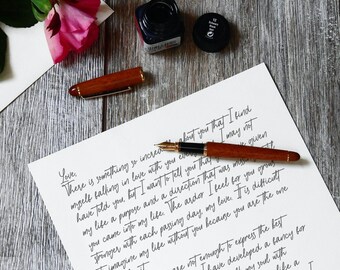 Love,
There is something so incredible about you that I find
myself falling in love with you I may not
have told you, but I want to tell you that given
my life a purpose and a direction that was
you came into my life. The ardor I feel for you
stronger with each passing day, my love. It is difficult
imagine my life without you because you are the one
are not enough to express the best
I have developed a fancy for
my soul with
like a